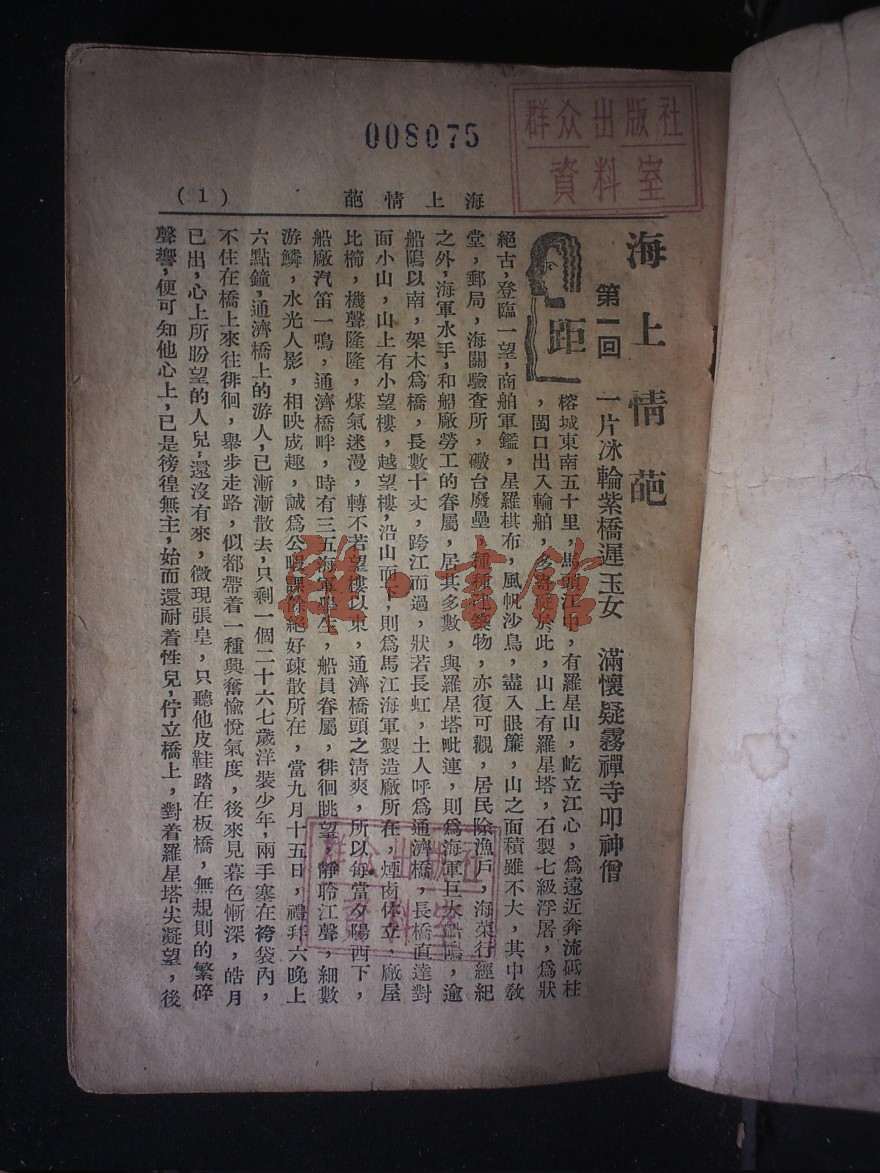 群众出版社
資料室
008075
海上情葩
(1)
海上情葩
第一回 一片冰輪紫橋遲玉女 滿懷疑霧禪寺叩神僧
距榕城東南五十里，馬頭江中，有羅星山，屹立江心，為遠近奔流砥柱
，閩口出入輪舶，多寄碇於此，山上有羅星塔，石製七級浮屠，為狀
絕古，登臨一望，商舶軍鑑，星羅棋布，風帆沙鳥，盡入眼簾，山之面積雖不大，其中敎
堂，郵局，海關驗查所，礮台廢壘，種種建築物，亦復可觀，居民除漁戶，海菜行經紀
之外，海軍水手，和船廠勞工的眷屬，居其多數，與羅星塔毗連，則為海軍巨大船隝，逾
船隝以南，架木爲橋，長數十丈，跨江而過，狀若長虹，土人呼爲通濟橋，長橋直達對
面小山，山上有小望樓，越望樓，沿山而，則爲馬江海軍製造廠所在，煙囱林立，廠屋
比櫛，機聲隆隆，煤氣迷漫，轉不若望樓以東，通濟橋頭之淸爽，所以每當夕陽西下，
船廠汽笛一鳴，通濟橋畔，時有三五海軍學生，船員眷屬，徘徊眺望，靜聆江聲，細數
游鱗，水光人影，相映成趣，誠爲公暇課餘絕好疎散所在，當九月十五日，禮拜六晚上
六點鐘，通濟橋上的游人，已漸漸散去，只剩一個二十六七歲洋裝少年，兩手塞在袴袋內，
不住在橋上來往徘徊，舉步走路，似都帶着一種興奮愉悅氣度，後來見暮色慚深，皓月
已出，心上所盼望的人兒，還沒有來，微現張皇，只聽他皮鞋踏在板橋，無規則的繁碎
聲響，便可知他心上，已是徬徨無主，始而還耐着性兒，佇立橋上，對着羅星塔尖凝望，後
群众出版社
資料室